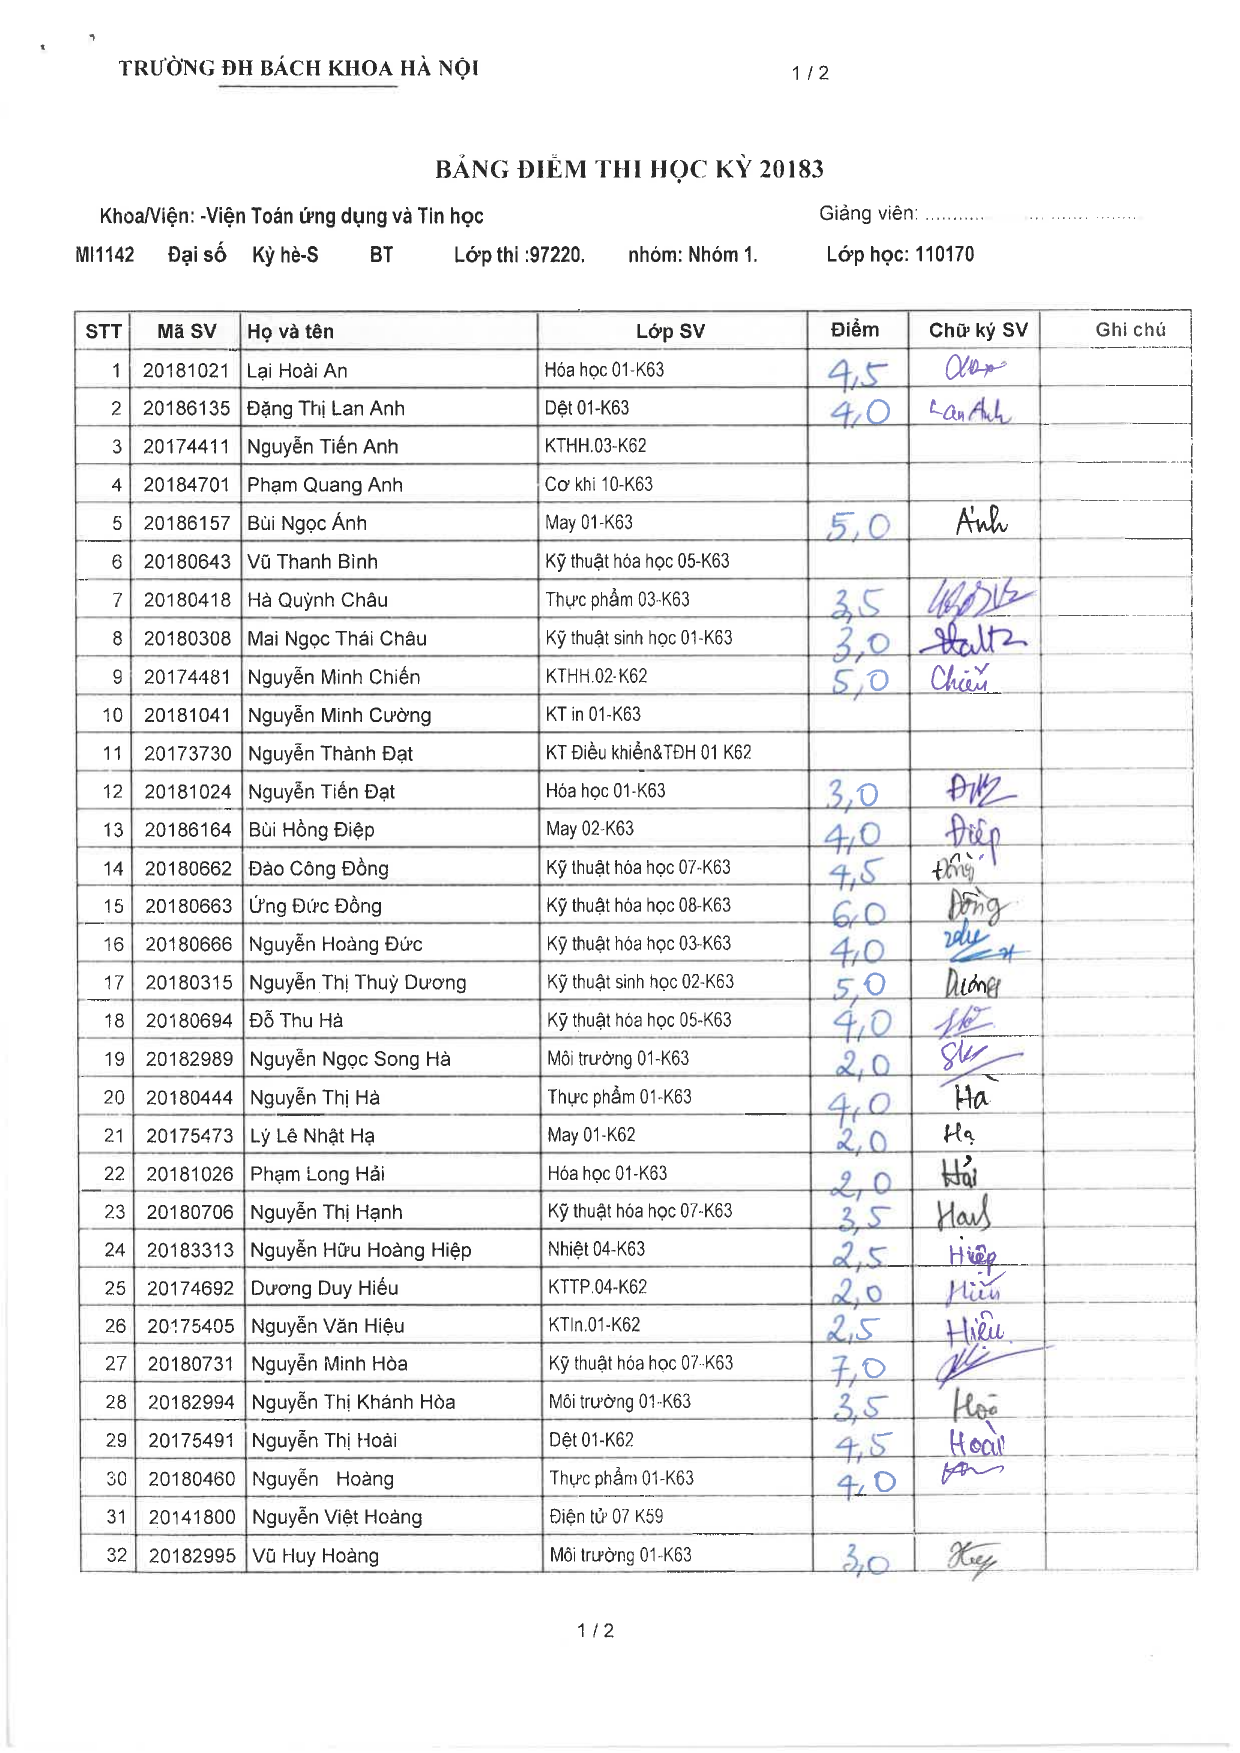 TRƯỜNG ĐH BÁCH KHOA HÀ NỘI 1 / 2
BẢNG ĐIỂM THI HỌC KỲ 20183
Khoa/Viện: -Viện Toán ứng dụng và Tin học Giảng viên: ...........
MI1142 Đại số Kỳ hè-S BT Lớp thi :97220. nhóm: Nhóm 1. Lớp học: 110170
STT Mã SV Họ và tên Lớp SV Điểm Chữ ký SV Ghi chú
1 20181021 Lại Hoài An Hóa học 01-K63 4,5
2 20186135 Đặng Thị Lan Anh Dệt 01-K63 4,0 Lan Anh
3 20174411 Nguyễn Tiến Anh KTHH.03-K62
4 20184701 Phạm Quang Anh Cơ khi 10-K63
5 20186157 Bùi Ngọc Ánh May 01-K63 5,0 Ánh
6 20180643 Vũ Thanh Bình Kỹ thuật hóa học 05-K63
7 20180418 Hà Quỳnh Châu Thực phẩm 03-K63 3,5
8 20180308 Mai Ngọc Thái Châu Kỹ thuật sinh học 01-K63 3,0
9 20174481 Nguyễn Minh Chiến KTHH.02-K62 5,0 Chiến
10 20181041 Nguyễn Minh Cường KT in 01-K63
11 20173730 Nguyễn Thành Đạt KT Điều khiển&TĐH 01 K62
12 20181024 Nguyễn Tiến Đạt Hóa học 01-K63 3,0
13 20186164 Bùi Hồng Điệp May 02-K63 4,0 Điệp
14 20180662 Đào Công Đồng Kỹ thuật hóa học 07-K63 4,5 Đồng
15 20180663 Ứng Đức Đồng Kỹ thuật hóa học 08-K63 6,0 Đồng
16 20180666 Nguyễn Hoàng Đức Kỹ thuật hóa học 03-K63 4,0
17 20180315 Nguyễn Thị Thuỳ Dương Kỹ thuật sinh học 02-K63 5,0 Dương
18 20180694 Đỗ Thu Hà Kỹ thuật hóa học 05-K63 4,0
19 20182989 Nguyễn Ngọc Song Hà Môi trường 01-K63 2,0
20 20180444 Nguyễn Thị Hà Thực phẩm 01-K63 4,0 Hà
21 20175473 Lý Lê Nhật Hạ May 01-K62 2,0 Hạ
22 20181026 Phạm Long Hải Hóa học 01-K63 2,0 Hải
23 20180706 Nguyễn Thị Hạnh Kỹ thuật hóa học 07-K63 3,5
24 20183313 Nguyễn Hữu Hoàng Hiệp Nhiệt 04-K63 2,5 Hiệp
25 20174692 Dương Duy Hiếu KTTP.04-K62 2,0 Hiếu
26 20175405 Nguyễn Văn Hiệu KTIn.01-K62 2,5 Hiệu
27 20180731 Nguyễn Minh Hòa Kỹ thuật hóa học 07-K63 7,0
28 20182994 Nguyễn Thị Khánh Hòa Môi trường 01-K63 3,5 Hòa
29 20175491 Nguyễn Thị Hoài Dệt 01-K62 4,5 Hoài
30 20180460 Nguyễn Hoàng Thực phẩm 01-K63 4,0
31 20141800 Nguyễn Việt Hoàng Điện tử 07 K59
32 20182995 Vũ Huy Hoàng Môi trường 01-K63 3,0
1 / 2